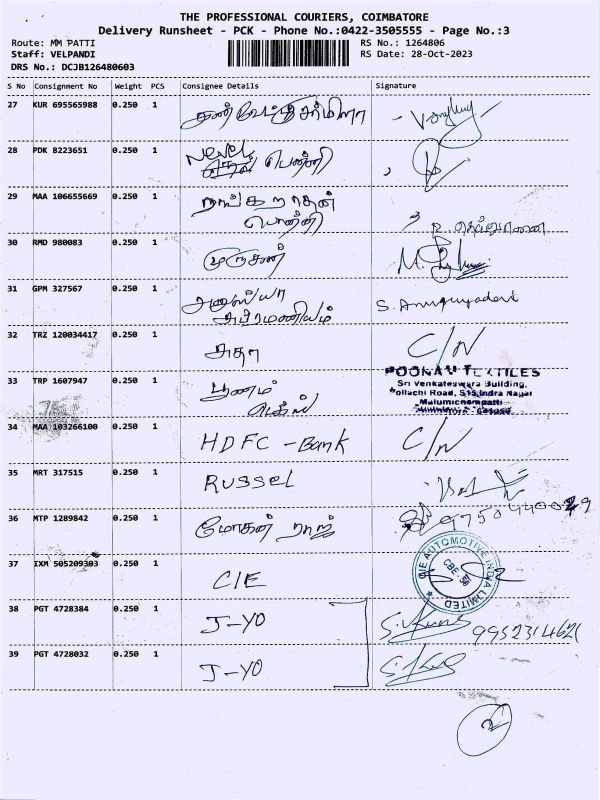 THE PROFESSIONAL COURIERS, COIMBATORE
Delivery Runsheet - PCK - Phone No.:0422-3505555 - Page No.:3
Route: MM PATTI
RS No.: 1264806
Staff: VELPANDI
RS Date: 28-Oct-2023
DRS No.: DCJB126480603
S No Consignment No Weight PCS Consignee Details Signature
27 KUR 695565988 0.250 1
28 PDK 8223651 0.250 1 பொன்னி
29 MAA 106655669 0.250 1
பொன்னி
30 RMD 980083 0.250 1 முருகன்
31 GPM 327567 0.250 1 S. Anusuyadevi
32 TRZ 120034417 0.250 1 அதா C/N
33 TRP 1607947 0.250 1 பூனம்
POONAM TEXTILES
Sri Venkateswara Building,
Pollachi Road, S15,Indra Nagar
Malumichampatti
34 MAA 103266100 0.250 1 HDFC - Bank C/N
35 MRT 317515 0.250 1 Russel
36 MTP 1289842 0.250 1 மோகன் ராஜ்
37 IXM 505209303 0.250 1 CIE
CIE AUTOMOTIVE INDIA LIMITED
38 PGT 4728384 0.250 1 J-YO 9952314621
39 PGT 4728032 0.250 1 J-YO